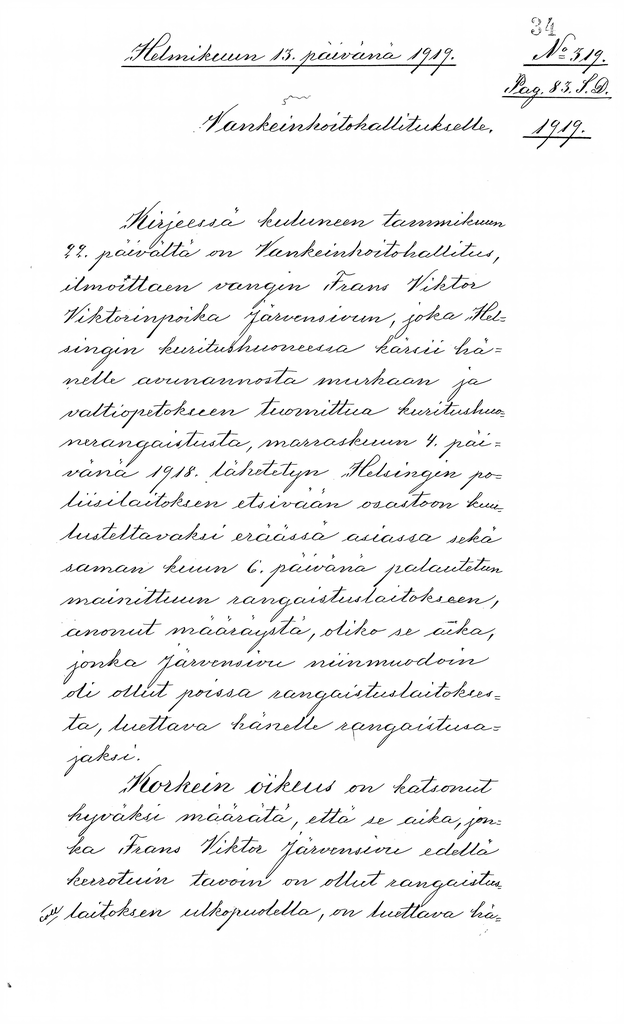 34
Helmikuun 13. päivänä 1919.
No 319.
Pag. 83. S. D.
Vankeinhoitohallitukselle.
1919.
Kirjeessä kuluneen tammikuun
22. päivältä on Vankeinhoitohallitus,
ilmoittaen vangin Frans Viktor
Viktorinpoika Järvensivun, joka Hel=
singin kuritushuoneessa kärsii hä=
nelle avunannosta murhaan ja
valtiopetokseen tuomittua kuritushuo=
nerangaistusta, marraskuun 4. päi=
vänä 1918 lähetetyn Helsingin po=
liisilaitoksen etsivään osastoon kuu=
lusteltavaksi eräässä asiassa sekä
saman kuun 6. päivänä palautetun
mainittuun rangaistuslaitokseen,
anonut määräystä, oliko se aika,
jonka Järvensivu niinmuodoin
oli ollut poissa rangaistuslaitokses=
ta, luettava hänelle rangaistusa=
jaksi.
Korkein oikeus on katsonut
hyväksi määrätä, että se aika, jon=
ka Frans Viktor Järvensivu edellä
kerrotuin tavoin on ollut rangaistus=
laitoksen ulkopuolella, on luettava hä=